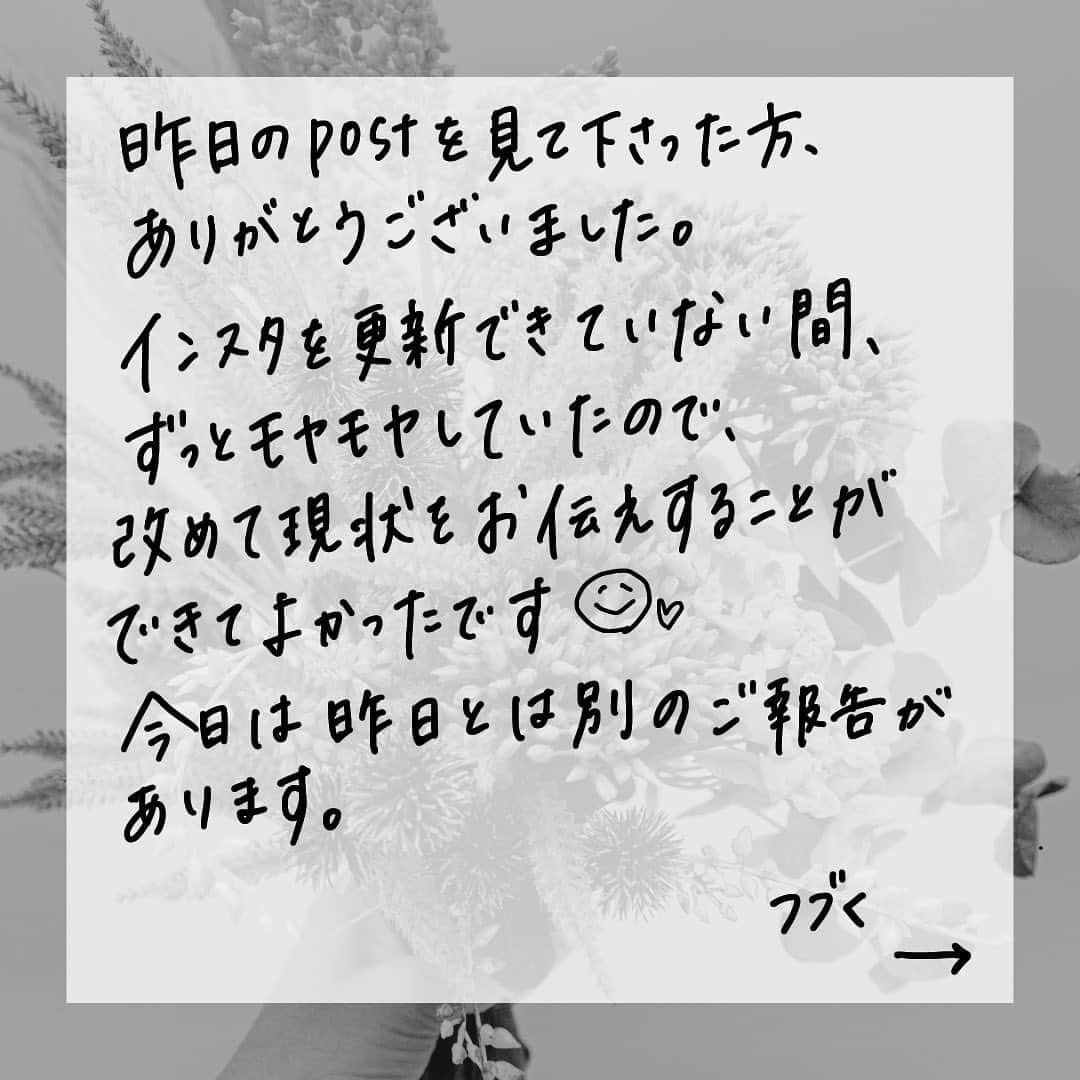 昨日のpostを見て下さった方、
ありがとうございました。
インスタを更新できていない間、
ずっとモヤモヤしていたので、
改めて現状をお伝えすることが
できてよかったです
今日は昨日とは別のご報告が
あります。
つづく